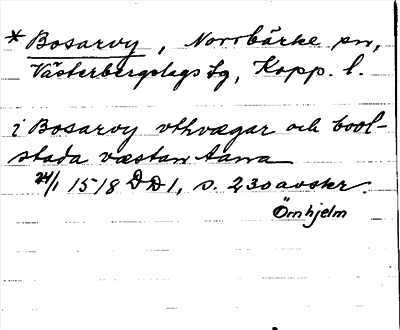 * Bosarvy, Norrbärke sn,
Västerbergslags tg, Kopp. l.
i Bosarvy vthvægar och bool-
stada væstan aana
24/1 1518 DD1, s. 230 avskr.
Örnhjelm